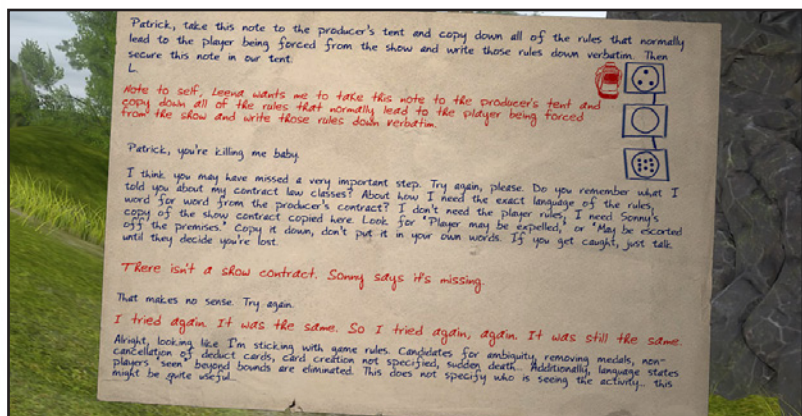 Patrick, take this note to the producer's tent and copy down all of the rules that normally
lead to the player being forced from the show and write those rules down verbatim. Then
secure this note in our tent.
L.
Note to self, Leena wants me to take this note to the producer's tent and
copy down all of the rules that normally lead to the player being forced
from the show and write those rules down verbatim.
Patrick, you're killing me baby.
I think you may have missed a very important step. Try again, please. Do you remember what I
told you about my contract law classes? About how I need the exact language of the rules,
word for word from the producer's contract? I don't need the player rules, I need Sonny's
copy of the show contract copied here. Look for "Player may be expelled," or "May be escorted
off the premises." Copy it down, don't put it in your own words. If you get caught, just talk
until they decide you're lost.
There isn't a show contract. Sonny says it's missing.
That makes no sense. Try again.
I tried again. It was the same. So I tried again, again. It was still the same.
Alright, looking like I'm sticking with game rules. Candidates for ambiguity, removing medals, non-
cancellation of deduct cards, card creation not specified, sudden death... Additionally, language states
players "seen" beyond bounds are eliminated. This does not specify who is seeing the activity... this
might be quite useful...